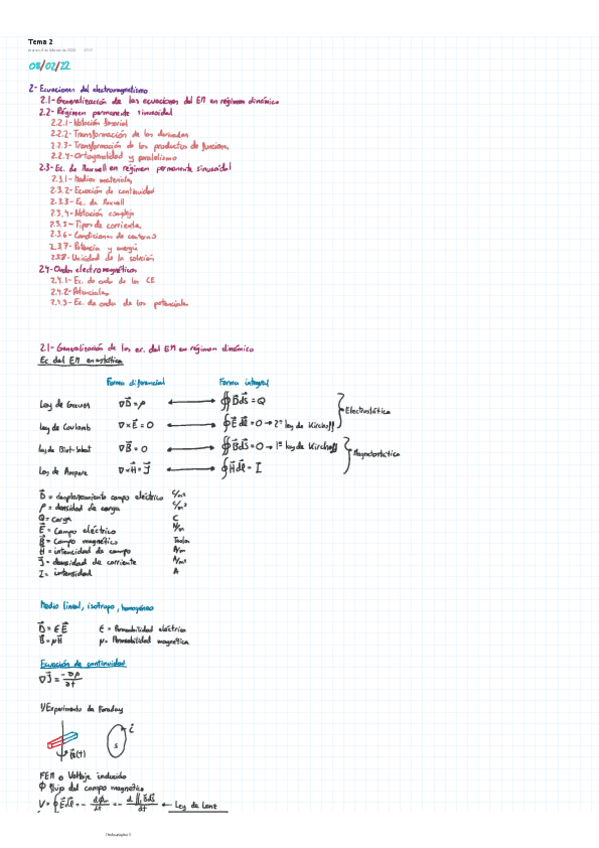 Tema 2
08/02/22
2- Ecuaciones del electromagnetismo
2.1- Generalización de las ecuaciones del EM en régimen dinámico
2.2- Régimen permanente sinusoidal
2.2.1- Notación fasorial
2.2.2- Transformación de las derivadas
2.2.3- Transformación de los productos de funciones
2.2.4- Ortogonalidad y paralelismo
2.3- Ec. de Maxwell en régimen permanente sinusoidal
2.3.1- Medios materiales
2.3.2- Ecuación de continuidad
2.3.3- Ec. de Maxwell
2.3.4- Notación compleja
2.3.5- Tipos de corriente
2.3.6- Condiciones de contorno
2.3.7- Potencia y energía
2.3.8- Unicidad de la solución
2.4- Ondas electromagnéticas
2.4.1- Ec. de onda de los CE
2.4.2- Potenciales
2.4.3- Ec. de onda de los potenciales
2.1- Generalización de las ec. del EM en régimen dinámico
Ec. del EM en estática
Forma diferencial Forma integral
Ley de Gauss ∇D⃗=ρ ⟷ ∯D⃗ds⃗=Q
Ley de Coulomb ∇×E⃗=0 ⟷ ∮E⃗dl⃗=0→2ª ley de Kirchoff } Electrostática
Ley de Biot-Savat ∇B⃗=0 ⟷ ∯B⃗ds⃗=0→1ª ley de Kirchoff
Ley de Ampere ∇×H⃗=J⃗ ⟷ ∮H⃗dl⃗=I } Magnetostática
D⃗= desplazamiento campo eléctrico C/m²
ρ= densidad de carga C/m³
Q= carga C
E⃗= Campo eléctrico
B⃗= Campo magnético Teslas
H⃗= intencidad de campo A/m
J⃗= densidad de corriente A/m²
I= intensidad A
Medio lineal, isotropo, homogéneo
D⃗=εE⃗ ε= Permeabilidad eléctrica
B⃗=μH⃗ μ= Permeabilidad magnética
Ecuación de continuidad
∇J⃗=-∂ρ/∂t
1/Experimento de Faraday
i
S
B⃗(t)
FEM o Voltaje inducido
Φ flujo del campo magnético
V=∮E⃗dl⃗=-dΦm/dt=-d∬B⃗ds⃗/dt ← Ley de Lenz